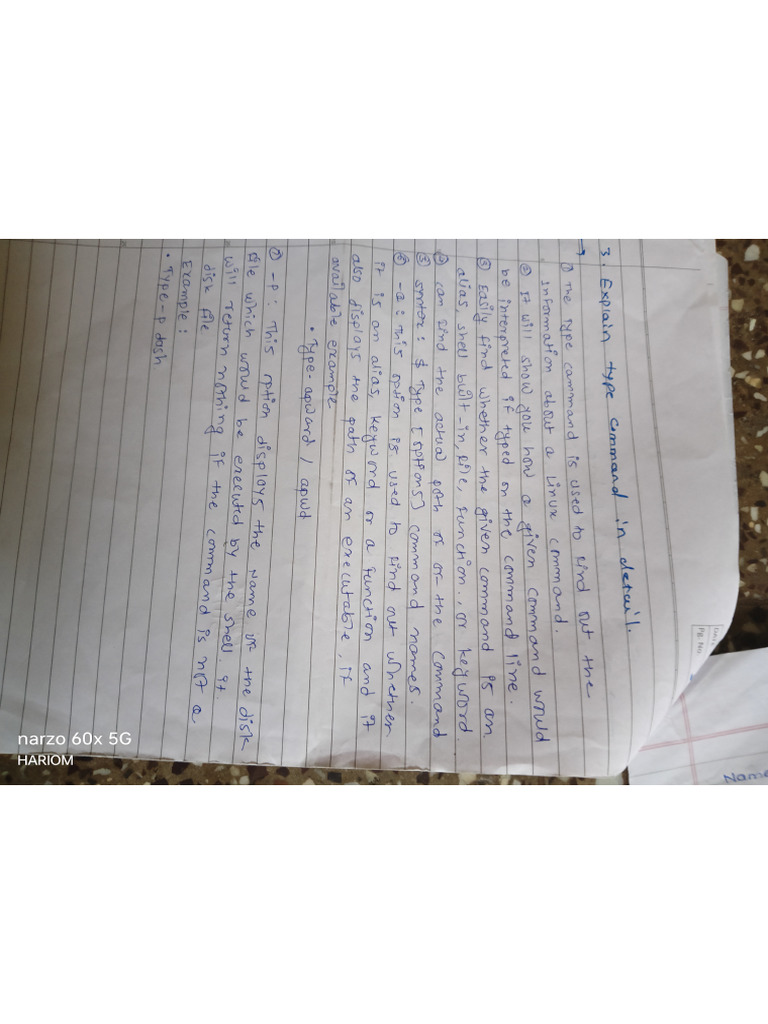 3. Explain type command in detail.
→
① The Type command is used to find out the
information about a Linux command.
② It will show you how a given command would
be interpreted if typed on the command line.
③ Easily find whether the given command is an
alias, shell built-in, file, function.., or keyword
④ can find the actual path of or the command
⑤ sntax: $ Type [options] command names.
⑥ -a: This option is used to find out whether
it is an alias, keyword or a function and it
also displays the path of an executable, if
available example
• Type-apward / apwd
⑦ -p: This option displays the name of the disk
file which would be executed by the shell. It
will return nothing if the command is not a
disk file
Example:
• Type-p dash
Pg. No.
Name
narzo 60x 5G
HARIOM